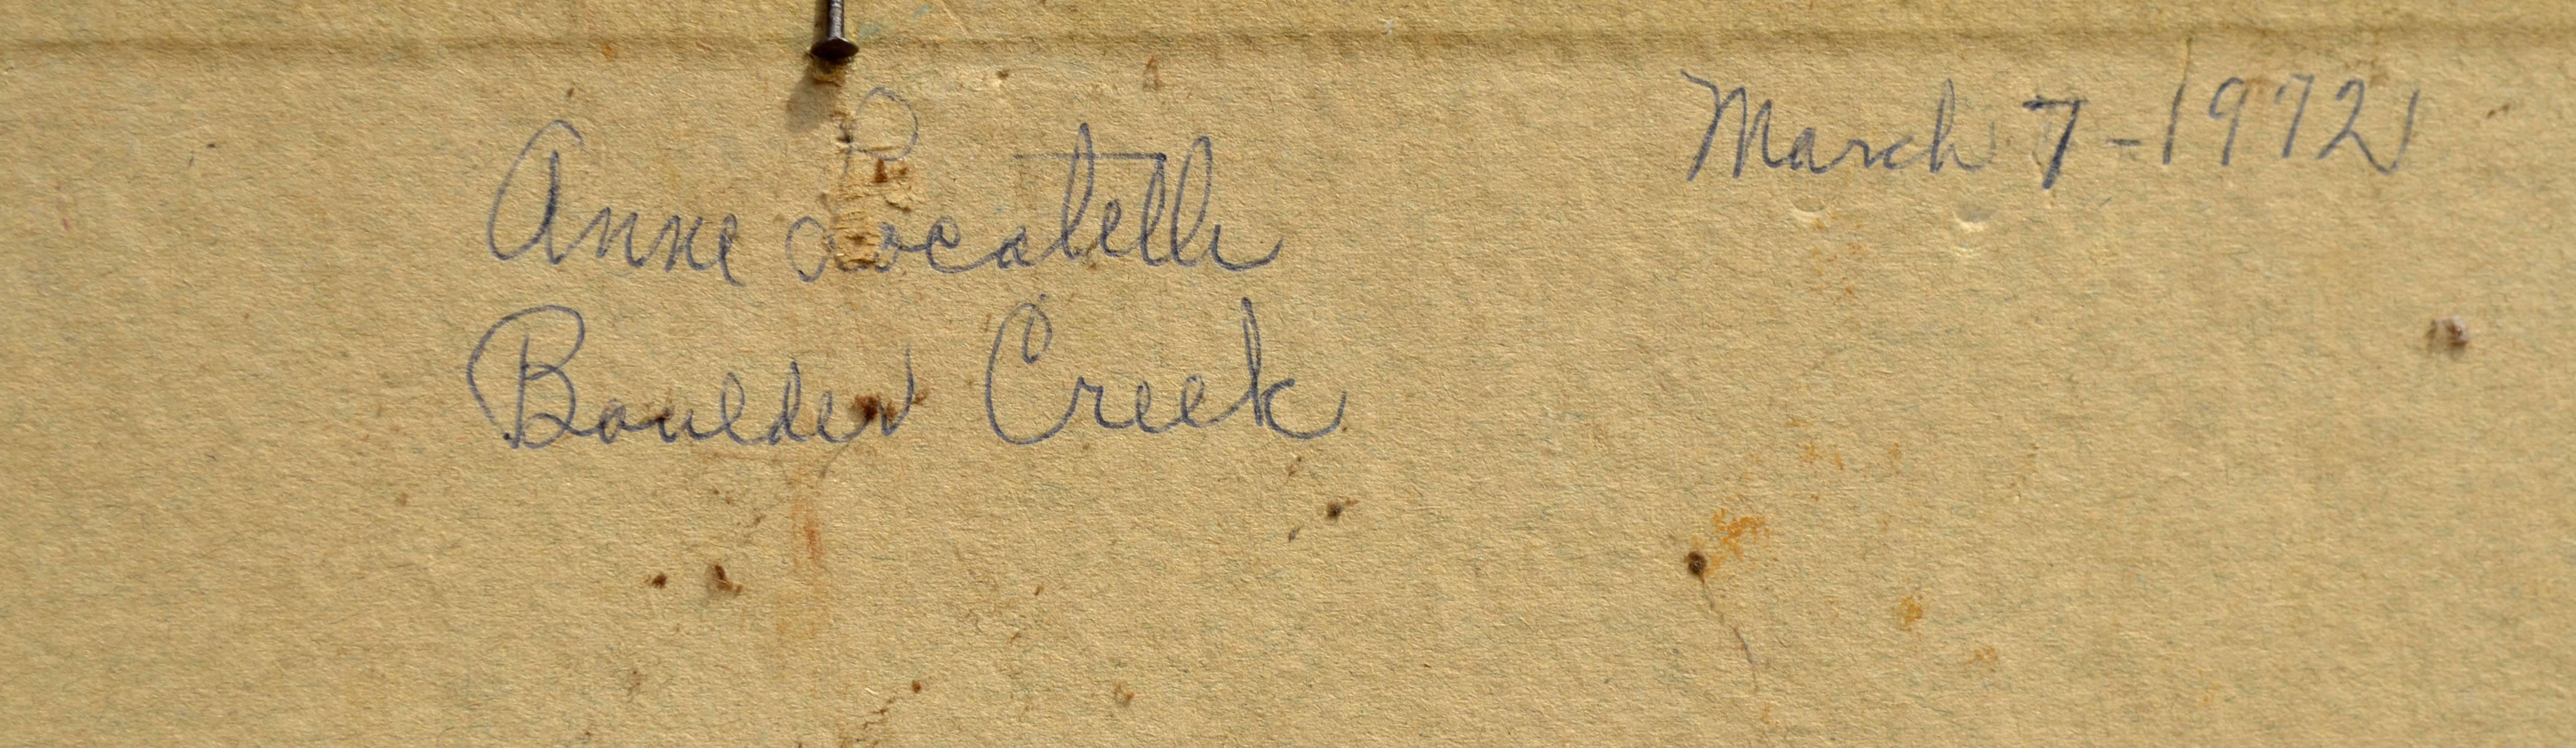 March 7-1972
Anne Locatelli
Boulder Creek